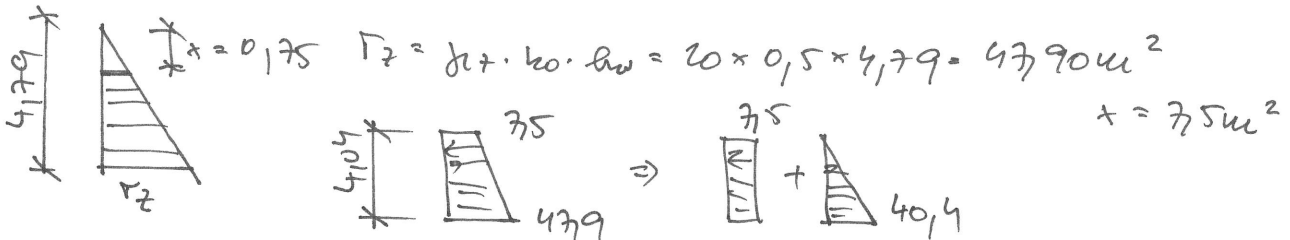 4,79
x = 0,75 σz = γz · k0 · hw = 20 × 0,5 × 4,79 = 47,90 m²
x = 7,5 m²
σz
4,04
7,5
47,9
⇒
7,5
+
40,4